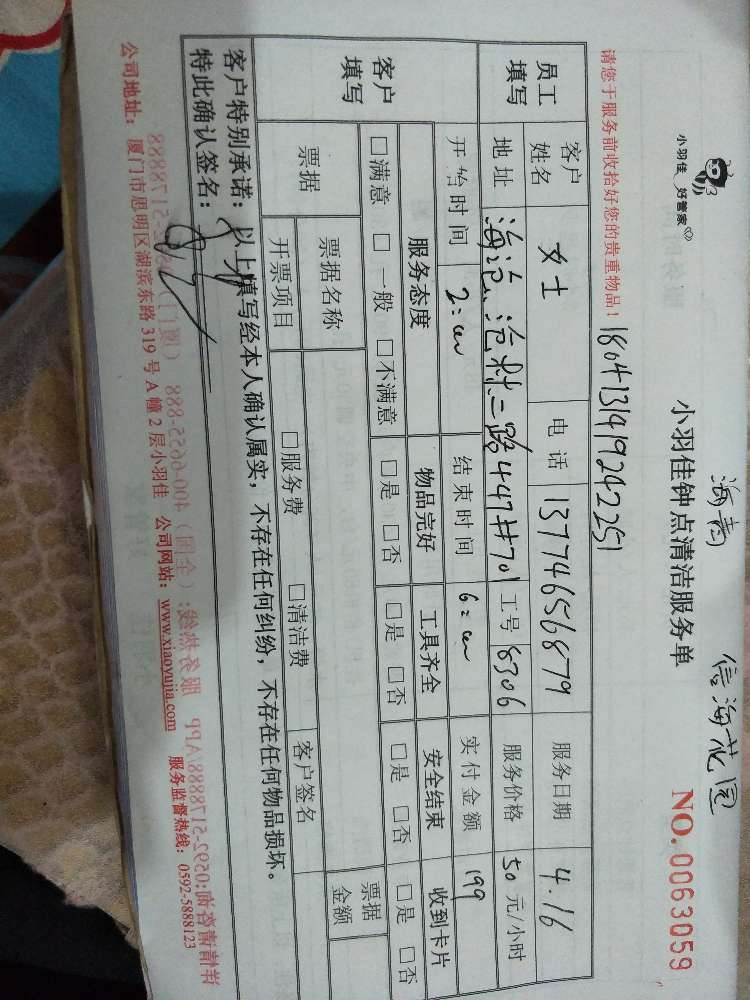 海青 信海花园
小羽佳 好管家
小羽佳钟点清洁服务单
NO. 0063059
请您于服务前收拾好您的贵重物品！
18041314192422251
员工填写 客户姓名 女士 电话 13774656879 服务日期 4.16
地址 海沧沧林二路447#701 工号 8306 服务价格 50 元/小时
开始时间 2:00 结束时间 6:00 实付金额 199
客户填写 服务态度 物品完好 工具齐全 安全结束 收到卡片
□满意 □一般 □不满意 □是 □否 □是 □否 □是 □否 □是 □否
票据 票据名称 客户签名 票据金额
开票项目 □服务费 □清洁费
客户特别承诺：以上填写经本人确认属实，不存在任何纠纷，不存在任何物品损坏。
特此确认签名：
公司地址：厦门市思明区湖滨东路 319 号 A 幢 2 层小羽佳 公司网站：www.xiaoyujia.com 服务监督热线：0592-5888123